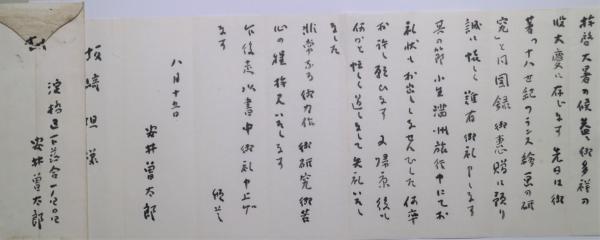 拝啓 大暑の候 益々御多祥の
段大慶に存じます 先日は御
著「十八世紀フランス絵画の研
究」と同図録御恵贈に預り
誠に忝しく難有御礼申します
其の節小生満洲旅行中にてお
礼状もお出ししませんでした 何卒
お許し願ひます 又帰京後も
何かと忙しく過しまして失礼いたし
ました
非常なる御力作 御研究御苦
心の程拝見いたします
以書中御礼申上げ
ます 頓首
八月十五日
安井曽太郎
坂崎坦様
淀橋区下落合
安井曽太郎